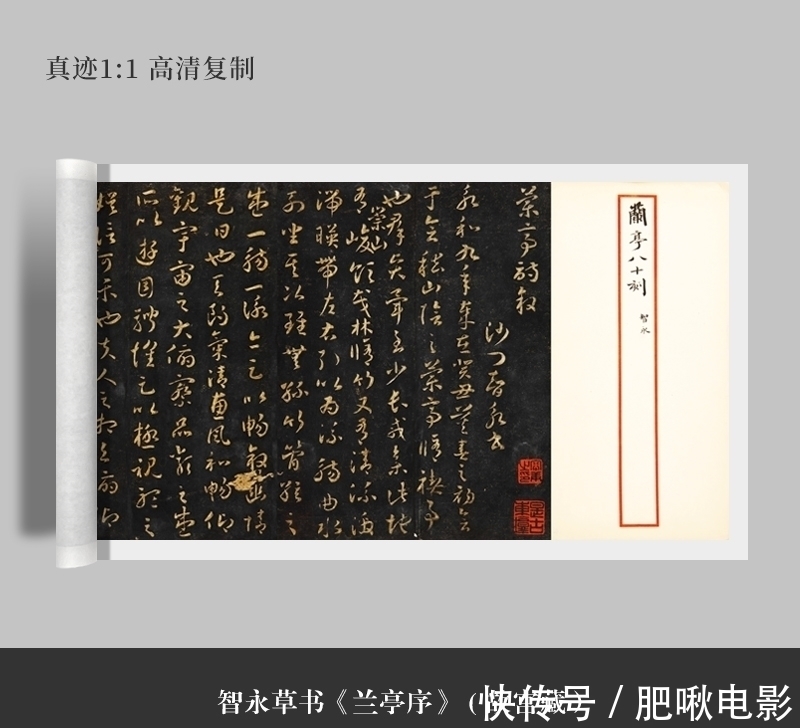 真迹1:1 高清复制
蘭亭八十刻
智永
蘭亭詩叙
沙門智永書
永和九年歲在癸丑暮春之初會
于會稽山陰之蘭亭脩禊事
也群賢畢至少長咸集此地
有崇山峻領茂林脩竹又有清流激
湍暎帶左右引以為流觴曲水
列坐其次雖無絲竹管弦之
盛一觴一詠亦足以暢叙幽情
是日也天朗氣清惠風和暢仰
觀宇宙之大俯察品類之盛
所以遊目騁懷足以極視聽之
娛信可樂也夫人之相與俯仰
智永草书《兰亭序》(宫藏)
快传号 / 肥啾电影